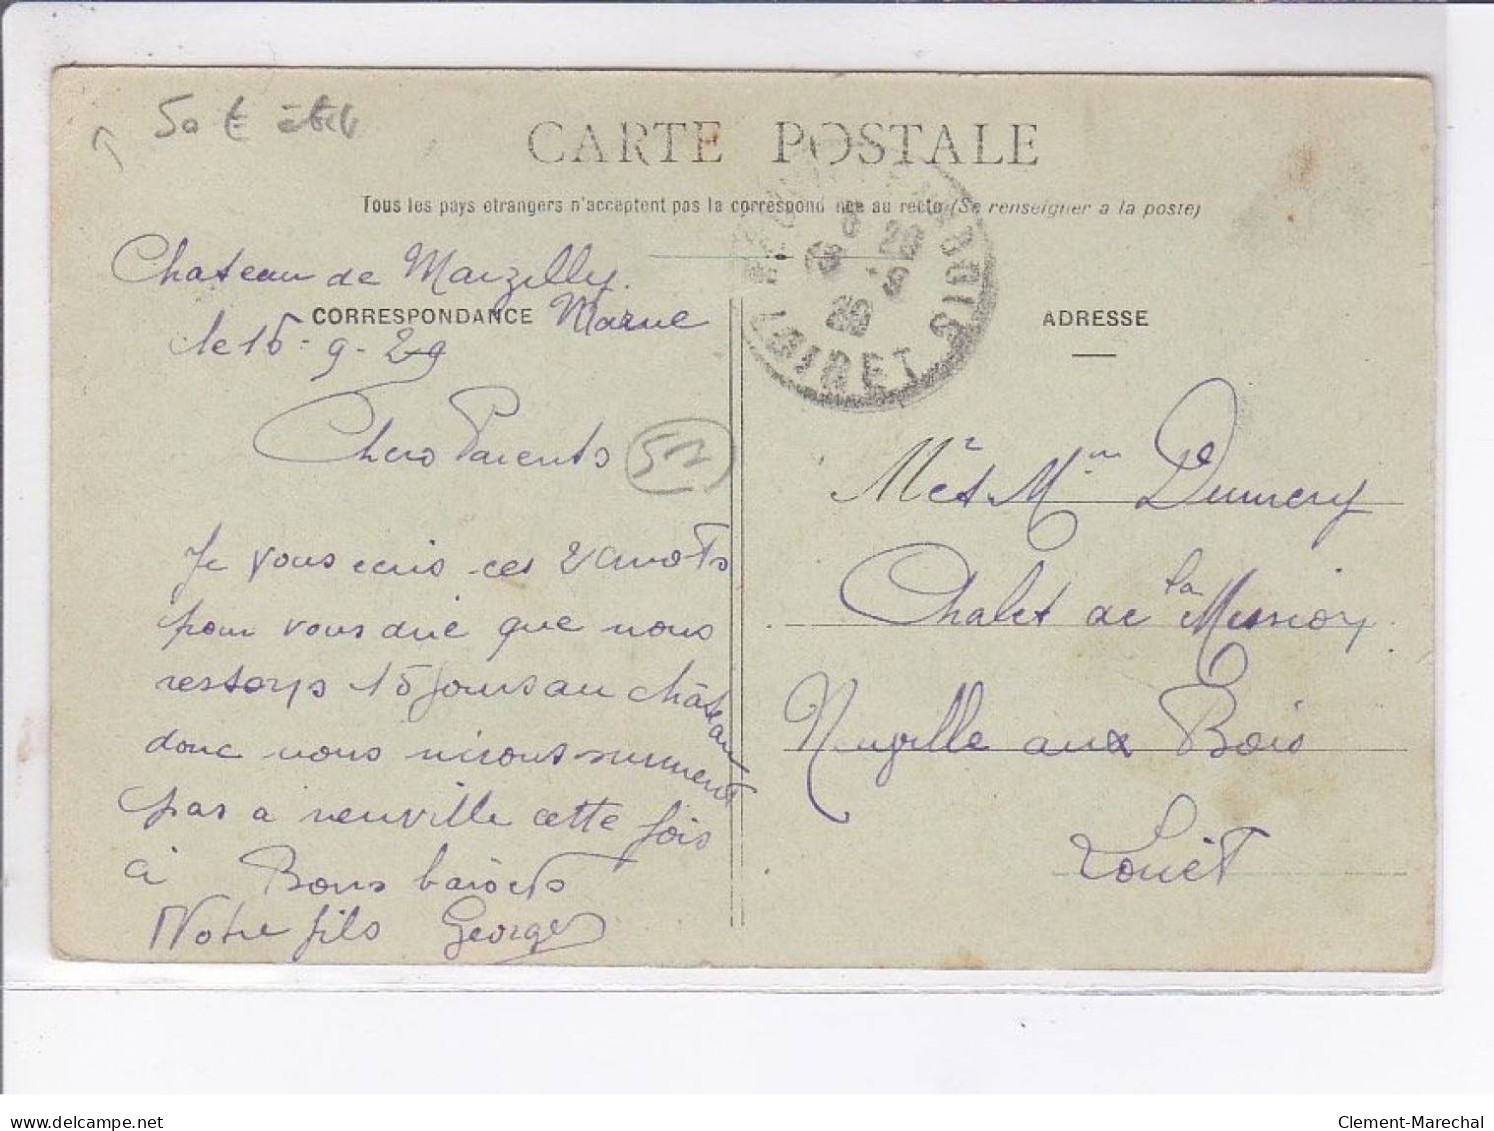 50 €
CARTE POSTALE
Tous les pays etrangers n'acceptent pas la correspond nce au recto (Se renseigner a la poste)
Chateau de Marzilly.
CORRESPONDANCE Marne
le 15-9-29
Chers Parents
51
Je vous ecris ces 2 mots
pour vous die que nous
restons 15 jours au château
donc nous nirons surment
pas a neuville cette fois
ci Bons baisers
Notre fils Georges
LOIRET
ADRESSE
Mr et Mme Dumery
Chalet de la Mission
Neuville aux Bois
Loiret
delcampe.net
Clement-Marechal